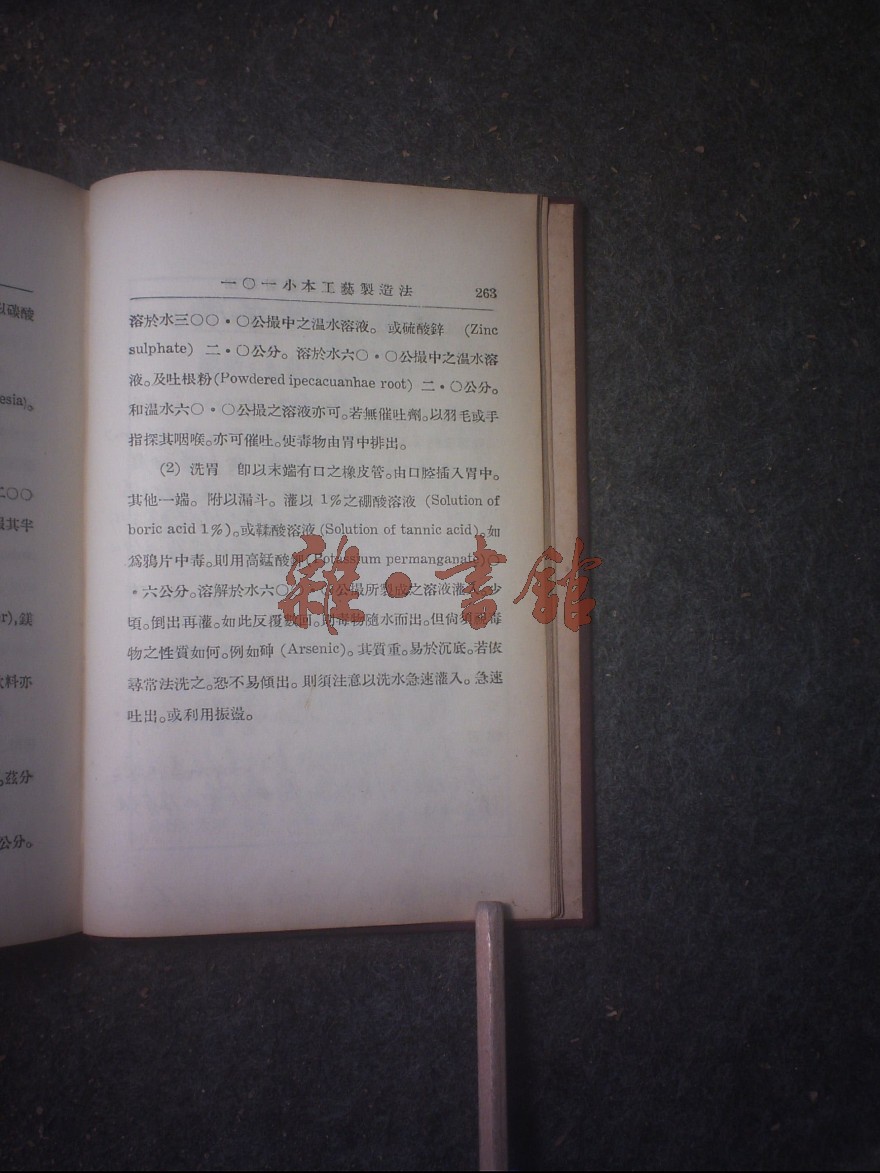 以礆酸
esia)。
二〇〇
其半
r),鎂
料亦
茲分
公分。
一〇一小本工藝製造法 263
溶於水三〇〇·〇公撮中之温水溶液。或硫酸鋅 (Zinc
sulphate) 二·〇公分。溶於水六〇·〇公撮中之温水溶
液。及吐根粉(Powdered ipecacuanhae root) 二·〇公分。
和温水六〇·〇公撮之溶液亦可。若無催吐劑。以羽毛或手
指探其咽喉。亦可催吐。使毒物由胃中排出。
(2) 洗胃 卽以末端有口之橡皮管。由口腔插入胃中。
其他一端。附以漏斗。灌以 1%之硼酸溶液 (Solution of
boric acid 1%)。或鞣酸溶液(Solution of tannic acid)。如
爲鴉片中毒。則用高錳酸鉀(Potassium permanganate)〇
·六公分。溶解於水六〇〇·〇公撮所製成之溶液灌入。少
頃。倒出再灌。如此反覆數回。則毒物隨水而出。但尙須視毒
物之性質如何。例如砷 (Arsenic)。其質重。易於沉底。若依
尋常法洗之。恐不易傾出。則須注意以洗水急速灌入。急速
吐出。或利用振盪。
雜·書館